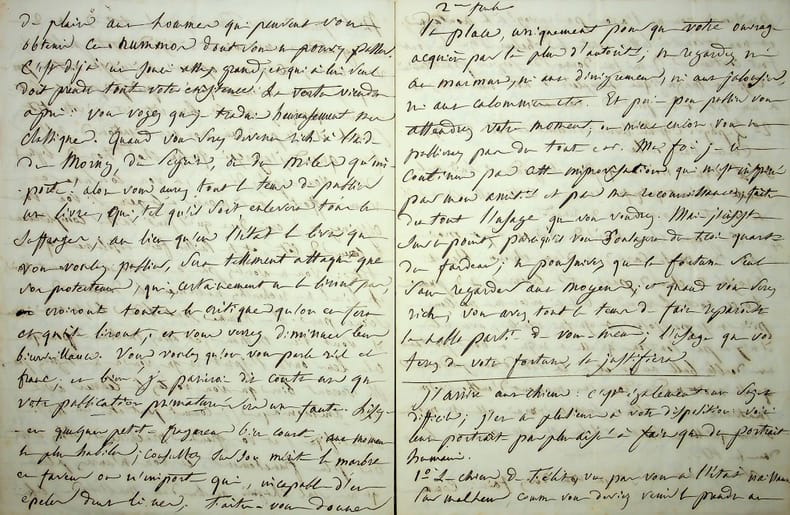 de plaire aux hommes qui peuvent vous
obtenir ce dont vous ne pouvez vous passer.
C'est déjà un souci assez grand, et qui à lui seul
doit prendre tout votre existence. La vertu viendra
après : vous voyez que je traduis heureusement mes
classiques. Quand vous serez devenu riche à l'aide
de Morny, de Seguin, ou de Mirès qu'im-
porte : alors vous aurez tout le tems de publier
un livre, qui, tel qu'il soit enlevera tous les
suffrages ; au lieu qu'en l'état le livre que
vous voulez publier, sera tellement attaqué que
vos protecteurs, qui certainement ne le liront pas,
croiront toutes les critiques qu'on en fera
et qu'ils liront, et vous verrez diminuer leur
bienveillance. Vous voulez qu'on vous parle net et
franc, eh bien je parierois dix contre un que
votre publication prématurée sera un faute. Lisez-
en quelques petits fragmens bien courts, aux hommes
les plus habiles ; consultez sur son mérite le marbre
en faveur ou n'importe qui, incapable d'en
épeler deux lignes. Faites-vous donner
2me feuille
la place, uniquement pour que votre ouvrage
acquière par là plus d'autorité ; ne regardez ni
au murmure, ni aux dénigremens, ni aux jalousies,
ni aux calomnies etc. Et puis pour publier vous
attendrez votre moment, ou mieux encore vous ne
publierez pas du tout car. Ma foi je
continue pas cette improvisation qui n'est inspirée
que par mon amitié et par ma reconnaissance ; faites
du tout l'usage que vous voudrez. Mais j'insiste
sur le point, puisque vous les trois quarts
du fardeau ; ne poursuivez que la fortune seule
sans regarder aux moyens, et quand vous serez
riche, vous aurez tout le tems de faire reparaître
la noble partie de vous-même ; l'usage que vous
ferez de votre fortune, la justifiera.
J'arrive aux chiens : c'est également un sujet
difficile ; j'en ai plusieurs à votre disposition, voici
leur portrait pas plus aisé à faire que des portraits
humains.
1º Le chien de vu par vous à l'état naissant
Par malheur comme vous deviez venir le prendre au